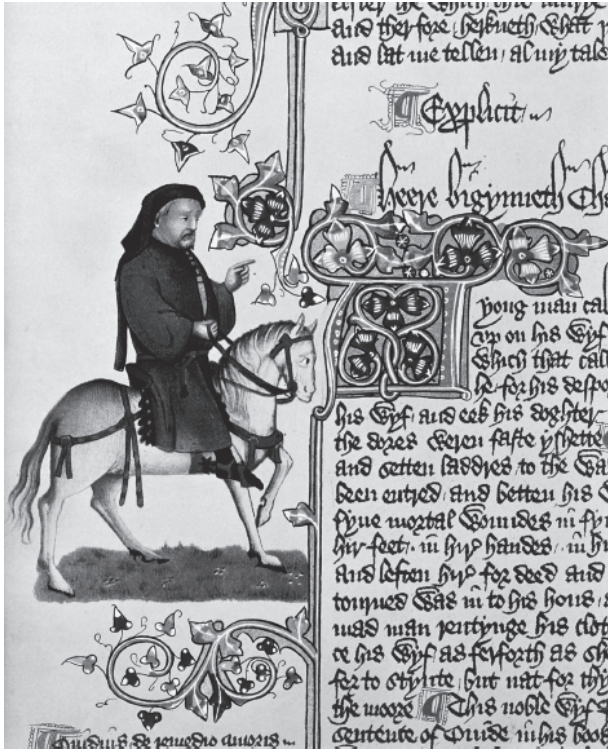 and ther fore / herkneth what
and lat me tellen / al my tale
¶ Explicit
¶ Heere bigynneth Cha
yong man cal
vp on his wyf
which that call
he for his despo
his wyf / and eek his doghter
the dores weren faste yshette
and setten laddres / to the wa
been entred / and betten his w
fyue mortal woundes in fy
hir feet / in hir handes / in hi
and leften hir for deed and
tourned was in to his hous /
mad man rentynge his clot
ce his wyf as ferforth as she
for to stynte / but nat for thy
the moore ¶ This noble wyf
sentence of Ouide in his book
¶ Ouidius de remedio amoris